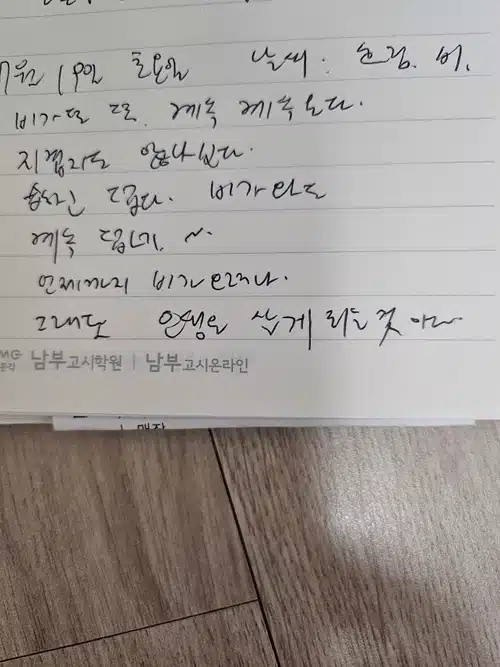 7월 19일 토요일 날씨: 흐림. 비.
비가 또 또. 계속 계속 오다.
지겹지도 않나 싶다.
습하고 덥다. 비가 와도
계속 덥네. ~.
언제까지 비가 오려나.
그래도 인생은 살게 되는 것 아
MG 남부고시학원 | 남부고시온라인